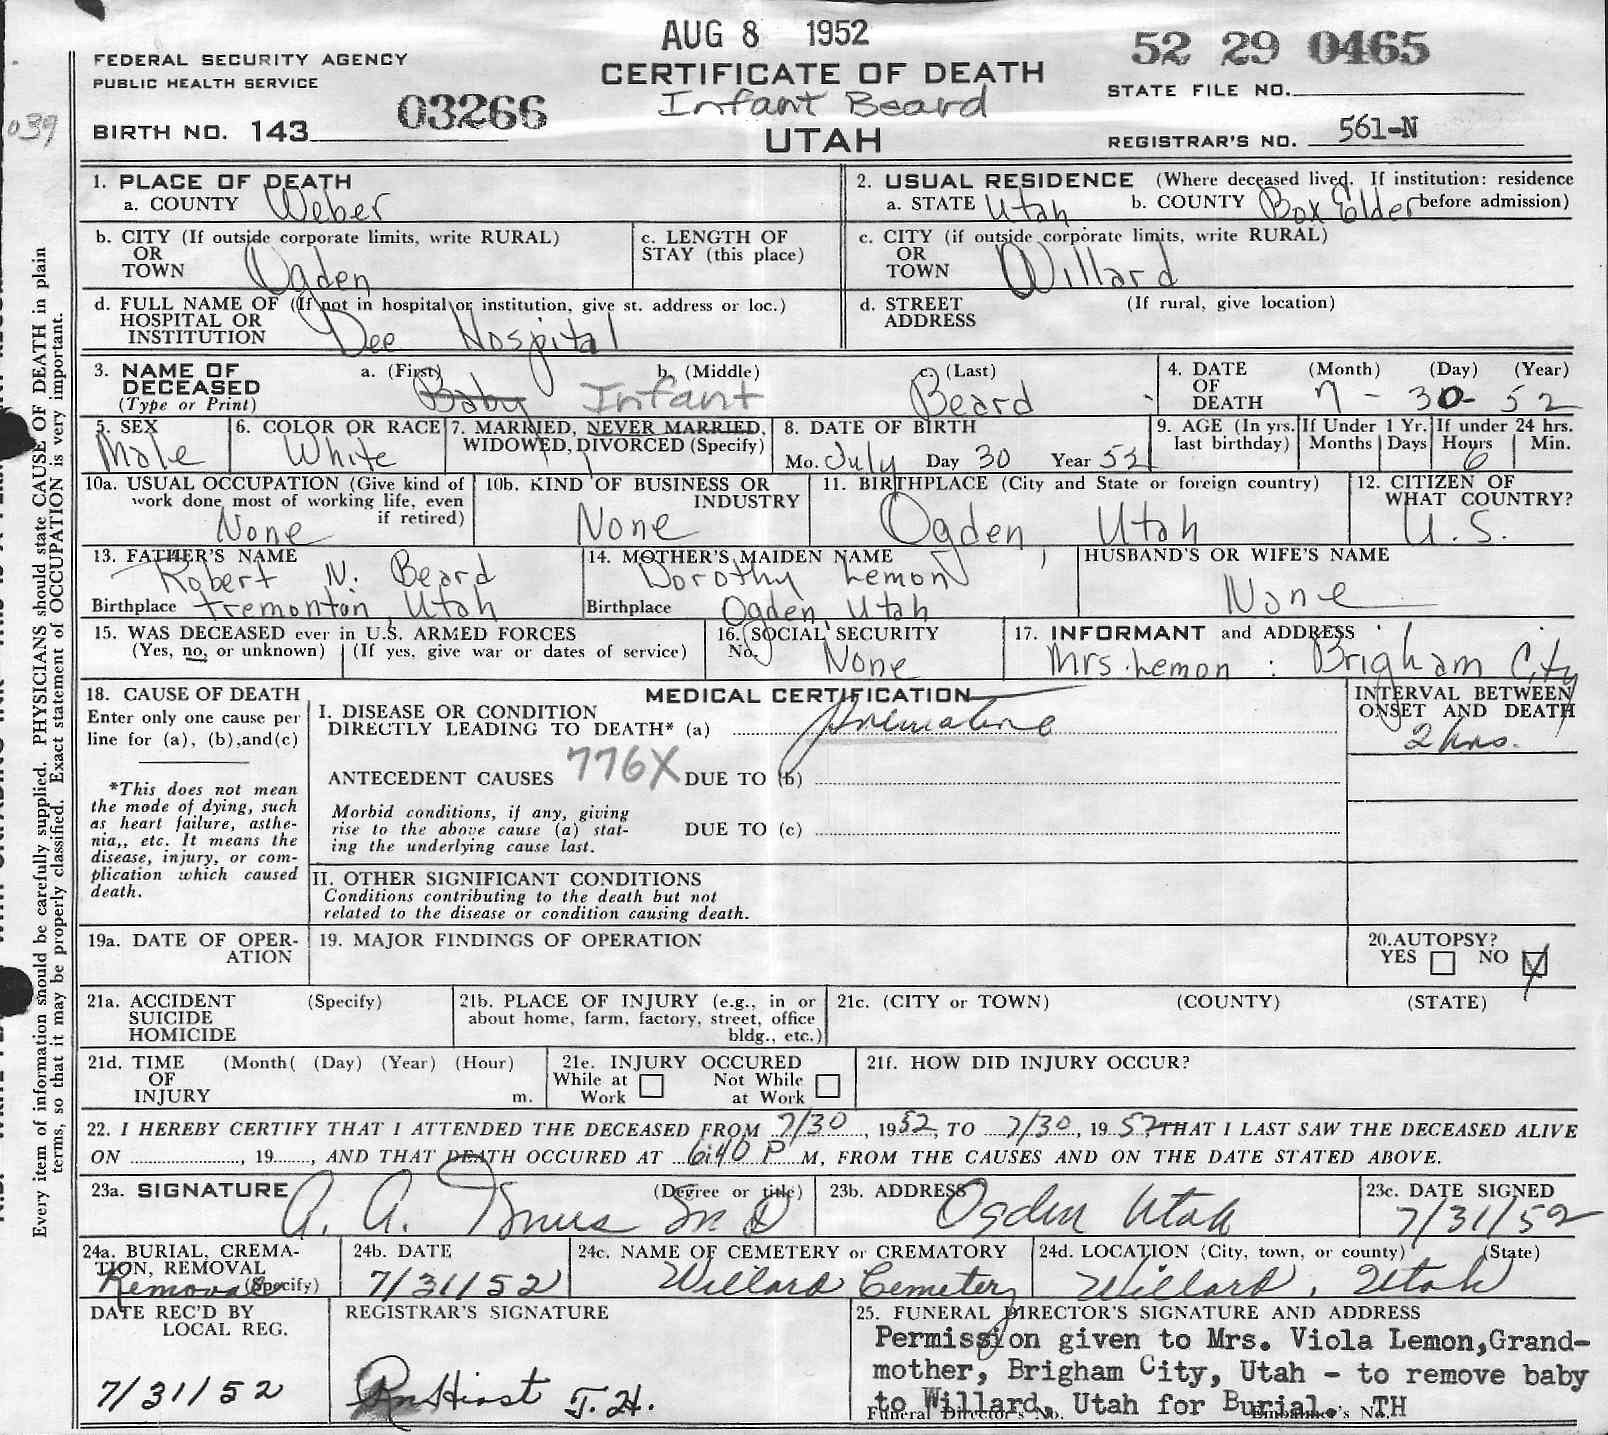 AUG 8 1952
52 29 0465
FEDERAL SECURITY AGENCY
PUBLIC HEALTH SERVICE
CERTIFICATE OF DEATH
STATE FILE NO.
Infant Beard
039
BIRTH NO. 143 03266
UTAH
REGISTRAR'S NO. 561-N
1. PLACE OF DEATH
a. COUNTY Weber
2. USUAL RESIDENCE (Where deceased lived. If institution: residence before admission)
a. STATE Utah b. COUNTY Box Elder
b. CITY (If outside corporate limits, write RURAL)
OR
TOWN Ogden
c. LENGTH OF
STAY (this place)
c. CITY (if outside corporate limits, write RURAL)
OR
TOWN Willard
d. FULL NAME OF (If not in hospital or institution, give st. address or loc.)
HOSPITAL OR
INSTITUTION Dee Hospital
d. STREET (If rural, give location)
ADDRESS
3. NAME OF
DECEASED
(Type or Print)
a. (First) b. (Middle) c. (Last)
Baby Infant Beard
4. DATE (Month) (Day) (Year)
OF
DEATH 7 - 30 - 52
5. SEX
Male
6. COLOR OR RACE
White
7. MARRIED, NEVER MARRIED,
WIDOWED, DIVORCED (Specify)
8. DATE OF BIRTH
Mo. July Day 30 Year 52
9. AGE (In yrs.
last birthday)
If Under 1 Yr.
Months Days
If under 24 hrs.
Hours Min.
6
10a. USUAL OCCUPATION (Give kind of
work done most of working life, even
if retired)
None
10b. KIND OF BUSINESS OR
INDUSTRY
None
11. BIRTHPLACE (City and State or foreign country)
Ogden Utah
12. CITIZEN OF
WHAT COUNTRY?
U.S.
13. FATHER'S NAME
Robert N. Beard
Birthplace Tremonton, Utah
14. MOTHER'S MAIDEN NAME
Dorothy Lemon
Birthplace Ogden, Utah
HUSBAND'S OR WIFE'S NAME
None
15. WAS DECEASED ever in U.S. ARMED FORCES
(Yes, no, or unknown) (If yes, give war or dates of service)
16. SOCIAL SECURITY
No. None
17. INFORMANT and ADDRESS
Mrs. Lemon : Brigham City
18. CAUSE OF DEATH
Enter only one cause per
line for (a), (b), and (c)
*This does not mean
the mode of dying, such
as heart failure, asthe-
nia,, etc. It means the
disease, injury, or com-
plication which caused
death.
MEDICAL CERTIFICATION
I. DISEASE OR CONDITION
DIRECTLY LEADING TO DEATH* (a) Premature
INTERVAL BETWEEN
ONSET AND DEATH
2 hrs.
ANTECEDENT CAUSES 776X DUE TO (b)
Morbid conditions, if any, giving
rise to the above cause (a) stat-
ing the underlying cause last.
DUE TO (c)
II. OTHER SIGNIFICANT CONDITIONS
Conditions contributing to the death but not
related to the disease or condition causing death.
19a. DATE OF OPER-
ATION
19. MAJOR FINDINGS OF OPERATION
20. AUTOPSY?
YES NO
21a. ACCIDENT (Specify)
SUICIDE
HOMICIDE
21b. PLACE OF INJURY (e.g., in or
about home, farm, factory, street, office
bldg., etc.)
21c. (CITY or TOWN) (COUNTY) (STATE)
21d. TIME (Month( (Day) (Year) (Hour)
OF
INJURY m.
21e. INJURY OCCURED
While at Work Not While at Work
21f. HOW DID INJURY OCCUR?
22. I HEREBY CERTIFY THAT I ATTENDED THE DECEASED FROM 7/30, 1952, TO 7/30, 1952 THAT I LAST SAW THE DECEASED ALIVE
ON , 19 , AND THAT DEATH OCCURED AT 6:40 P M, FROM THE CAUSES AND ON THE DATE STATED ABOVE.
23a. SIGNATURE (Degree or title)
A. A. M D
23b. ADDRESS
Ogden Utah
23c. DATE SIGNED
7/31/52
24a. BURIAL, CREMA-
TION, REMOVAL
(Specify)
Removal
24b. DATE
7/31/52
24c. NAME OF CEMETERY or CREMATORY
Willard Cemetery
24d. LOCATION (City, town, or county) (State)
Willard, Utah
DATE REC'D BY
LOCAL REG.
7/31/52
REGISTRAR'S SIGNATURE
Hirst J.H.
25. FUNERAL DIRECTOR'S SIGNATURE AND ADDRESS
Permission given to Mrs. Viola Lemon, Grand-
mother, Brigham City, Utah - to remove baby
to Willard, Utah for Burial. TH
Funeral Director's No. Embalmer's No.
Every item of information should be carefully supplied. PHYSICIANS should state CAUSE OF DEATH in plain
terms, so that it may be properly classified. Exact statement of OCCUPATION is very important.